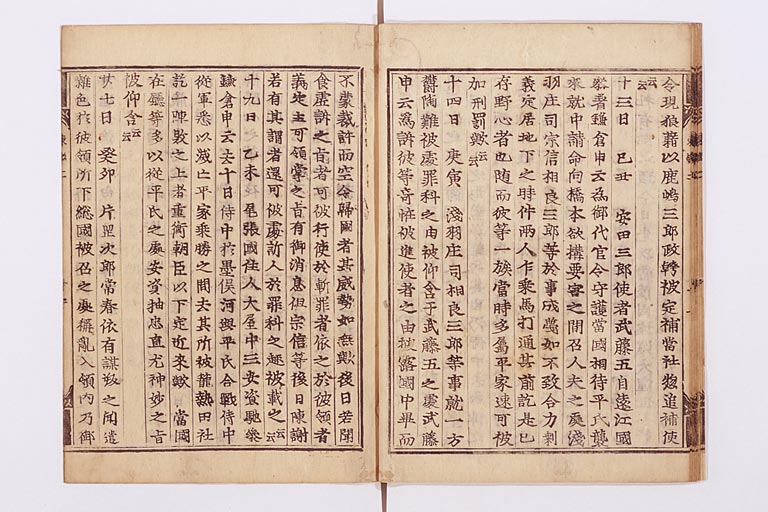 令現狼藉以鹿嶋三郎政幹被定補當社惣追補使
云云
十三日 己丑 安田三郎使者武藤五自遠江國
参着鎌倉申云為御代官令守護當國相待平氏襲
来就中請命向橋本欲搆要害之間召人夫之處淺
羽庄司宗信相良三郎等於事成蔑如不致合力剰
義定居地下之時件兩人乍乗馬打通其前訖是已
存野心者也随而彼等一族當時多属平家速可被
加刑罰歟云云
十四日 庚寅 淺羽庄司相良三郎等事就一方
欝陶難被處罪科之由被仰含于武藤五之處武藤
申云為訴彼等奇恠被進使者之由披露國中畢而
不蒙裁許而空令歸國者其威勢如無歟後日若聞
食虚訴之旨者可被行使於斬罪者依之於彼領者
義定主可領掌之旨有御消息但宗信等後日陳謝
若有其謂者還可被處訴人於罪科之趣被載之云云
十九日 乙未 尾張國住人大屋中三安資馳参
鎌倉申云去十日侍中於墨俣河與平氏合戦侍中
從軍悉以滅亡平家乗勝之間去其所被籠熱田社
訖 陣敗之上者重衡朝臣以下定近来歟 當國
在廳等多以從平氏之處安資抽忠直尤神妙之旨
被仰含云云
廿七日 癸卯 片罡次郎常春依有謀叛之聞遣
雜色於彼領所下総國被召之處稱亂入領内乃御